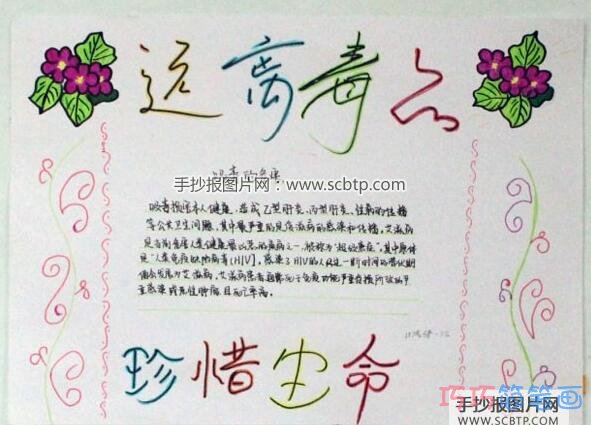 远离毒品
吸毒的危害
手抄报图片网：www.scbtp.com
吸毒损坏本人健康，造成乙型肝炎、丙型肝炎、性病的传播
等公共卫生问题，其中最严重的是艾滋病的感染和传播，艾滋病
是当前危害人类健康最凶恶的疾病之一，被称为"超级癌症"，其中原体
是"人类免疫缺陷病毒(HIV)，感染了HIV的人经过一断时间的潜伏期
便会发展为艾滋病，艾滋病患者
重感染或恶性肿瘤，且死亡率高。
珍惜生命
巧巧简笔画
手抄报图片网
WWW.SCBTP.COM